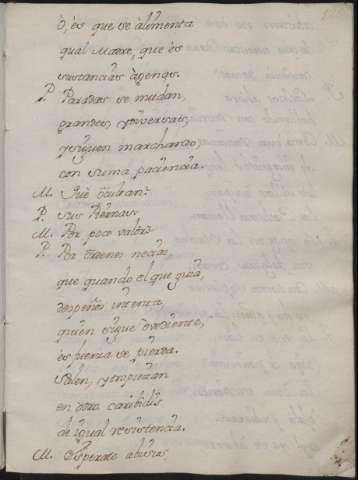 O, es que se alimenta
qual Madre, que es
sustancias agenas.
P. Paradas se mudan,
grandes, y diversas,
y siguen marchando,
con suma paciencia.
M. Qué ocultan?
P. Sus Piernas.
M. Por poco valor?
P. Por ordenes necias,
que quando el que guia,
despeños intenta,
quien sigue obediente,
es fuerza se pierda.
Salen, y tropiezan
en otra caribdis
de igual resistencia.
M. Esperate